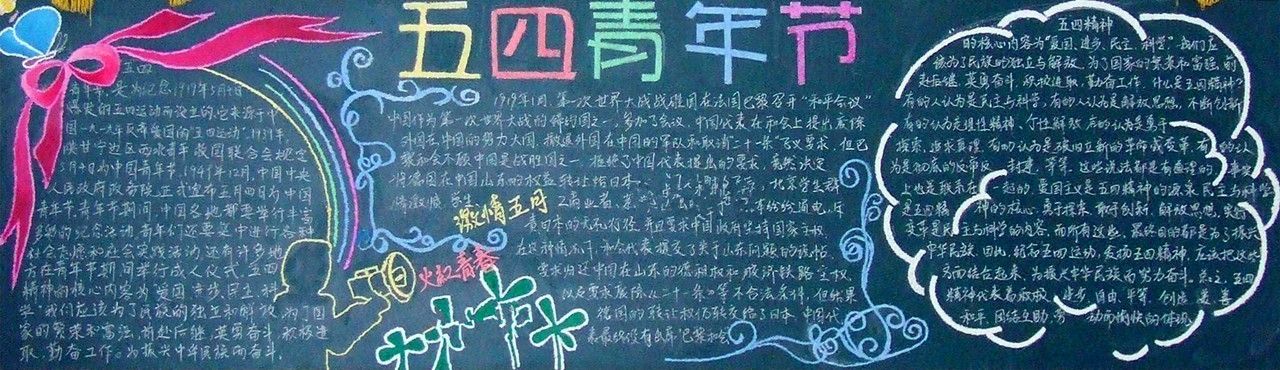 五四青年节
五四
青年节是为纪念1919年5月4日
爆发的五四运动而设立的,它来源于中
国一九一九年反帝爱国的"五四运动",1939年
陕甘宁边区西北青年救国联合会规定
5月4日为中国青年节,1949年12月,中国中央
人民政府政务院正式宣布五月四日为中国
青年节,青年节期间,中国各地都要举行丰富
多彩的纪念活动,青年们还要集中进行各种
社会志愿和社会实践活动,还有许多地
方在青年节期间举行成人仪式,五四
精神的核心内容为"爱国、进步、民主、科
学",我们应该为了民族的独立和解放,为了国
家的繁荣和富强,前赴后继,英勇奋斗,积极进
取,勤奋工作。为振兴中华民族而奋斗。
1919年1月,第一次世界大战战胜国在法国巴黎召开"和平会议"
中国作为第一次世界大战的
参加了会议,中国代表在和会上提出废除
外国在中国的势力
撤退外国在中国的军队和取消二十一条"等要求,但巴
黎和会不顾中国是战胜国之一,拒绝了中国代表提出的要求,竟然决定
将德国在中国山东的权益转让给日本。
北京学生群
情激愤
学生、工商业者
纷纷通电,斥
责日本的无礼行径,并且要求中国政府坚持国家主权
在这种情况下,和会代表提交了关于山东问题的说帖,
要求归还中国在山东的德租界和胶济铁路主权,
以及要求废除《二十一条》等不合法条件,但结果
德国的
转交给了日本,中国代
表最终没有出席巴黎和会
激情五月
火红青春
五四精神
的核心内容为"爱国、进步、民主、科学",我们应
该为了民族的独立与解放,为了国家的繁荣和富强,前
赴后继,英勇奋斗,积极进取,勤奋工作。什么是五四精神?
有的人认为是民主与科学,有的人认为是解放思想,不断创新
有的认为是理性精神、个性解放,有的认为是勇于
探索,追求真理,有的认为是
革命或变革,有的人认
为是彻底的反帝反封建,等等。这些说法都是有道理的,事实
上也是联系在一起的,爱国主义是五四精神的源泉,民主与科学
是五四精神的核心,勇于探索、敢于创新、解放思想、实行
变革是民主与科学的内容,而所有这些,最终目的都是为了振兴
中华民族,因此,纪念五四运动,发扬五四精神,应该把这些
方面结合起来,为振兴中华民族而努力奋斗。总之,五四
精神代表着
进步、自由、平等、创造
善
和平、
互助、劳
动而愉快的体现。